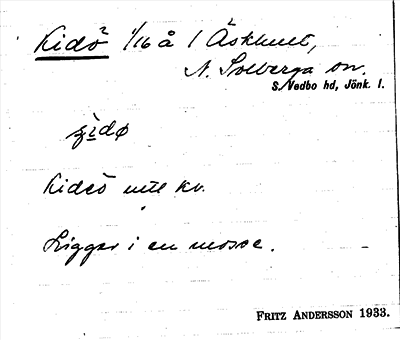 Kidö 1/16 å 1 Äskhult,
N. Solberga sn.
S. Vedbo hd, Jönk. l.
Kideö mtl kv.
Ligger i en mosse.
FRITZ ANDERSSON 1933.